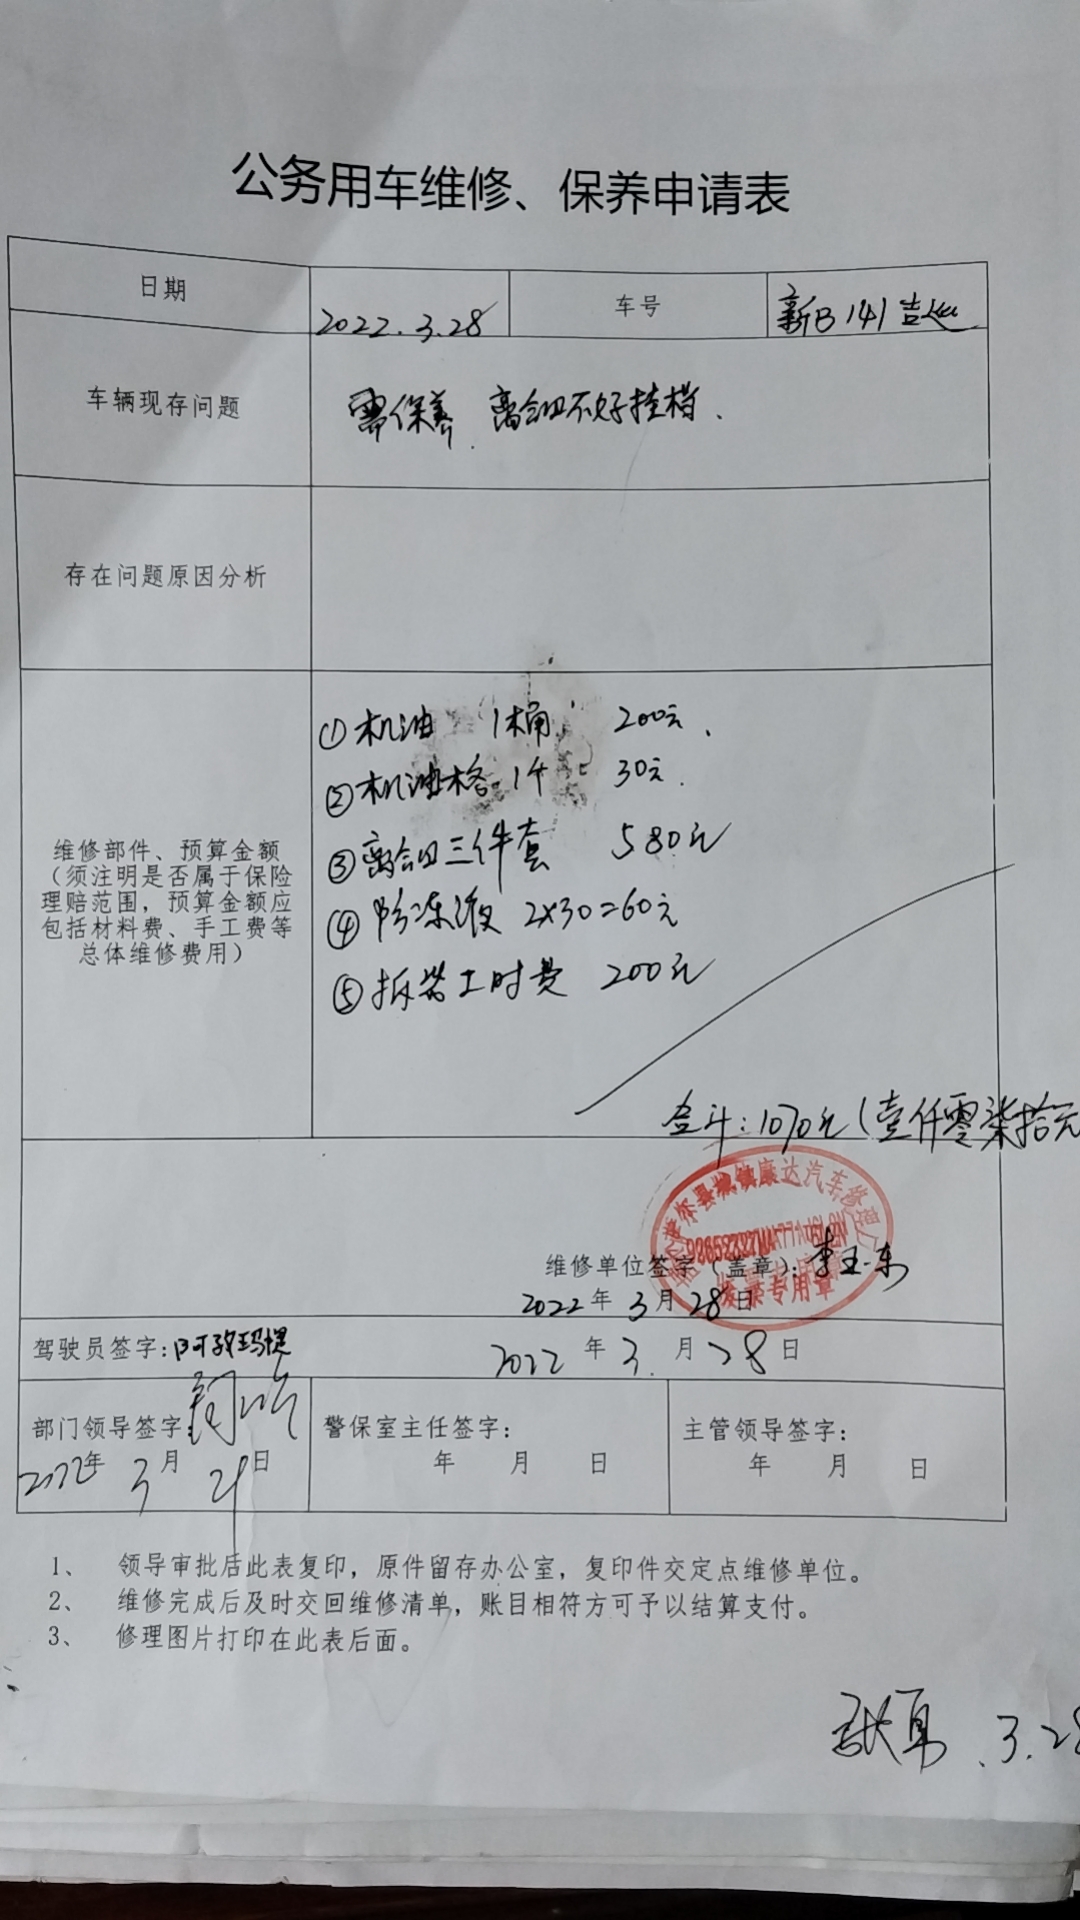 公务用车维修、保养申请表
日期 2022.3.28 车号 新B 141
车辆现存问题 需保养 离合四不好挂档.
存在问题原因分析
①机油 1桶 200元.
②机油格 1个 30元.
③离合四三件套 580元
④防冻液 2×30=60元
⑤拆装工时费 200元
维修部件、预算金额
(须注明是否属于保险
理赔范围,预算金额应
包括材料费、手工费等
总体维修费用)
合计:1070元(壹仟零柒拾元
镇康达汽车修理厂
发票专用章
维修单位签字(盖章):李玉东
2022年 3月 28日
驾驶员签字:阿孜玛提 2022 年 3. 月 28 日
部门领导签字: 警保室主任签字: 主管领导签字:
2022年 3月 日 年 月 日 年 月 日
1、 领导审批后此表复印,原件留存办公室,复印件交定点维修单位。
2、 维修完成后及时交回维修清单,账目相符方可予以结算支付。
3、 修理图片打印在此表后面。
.3.28